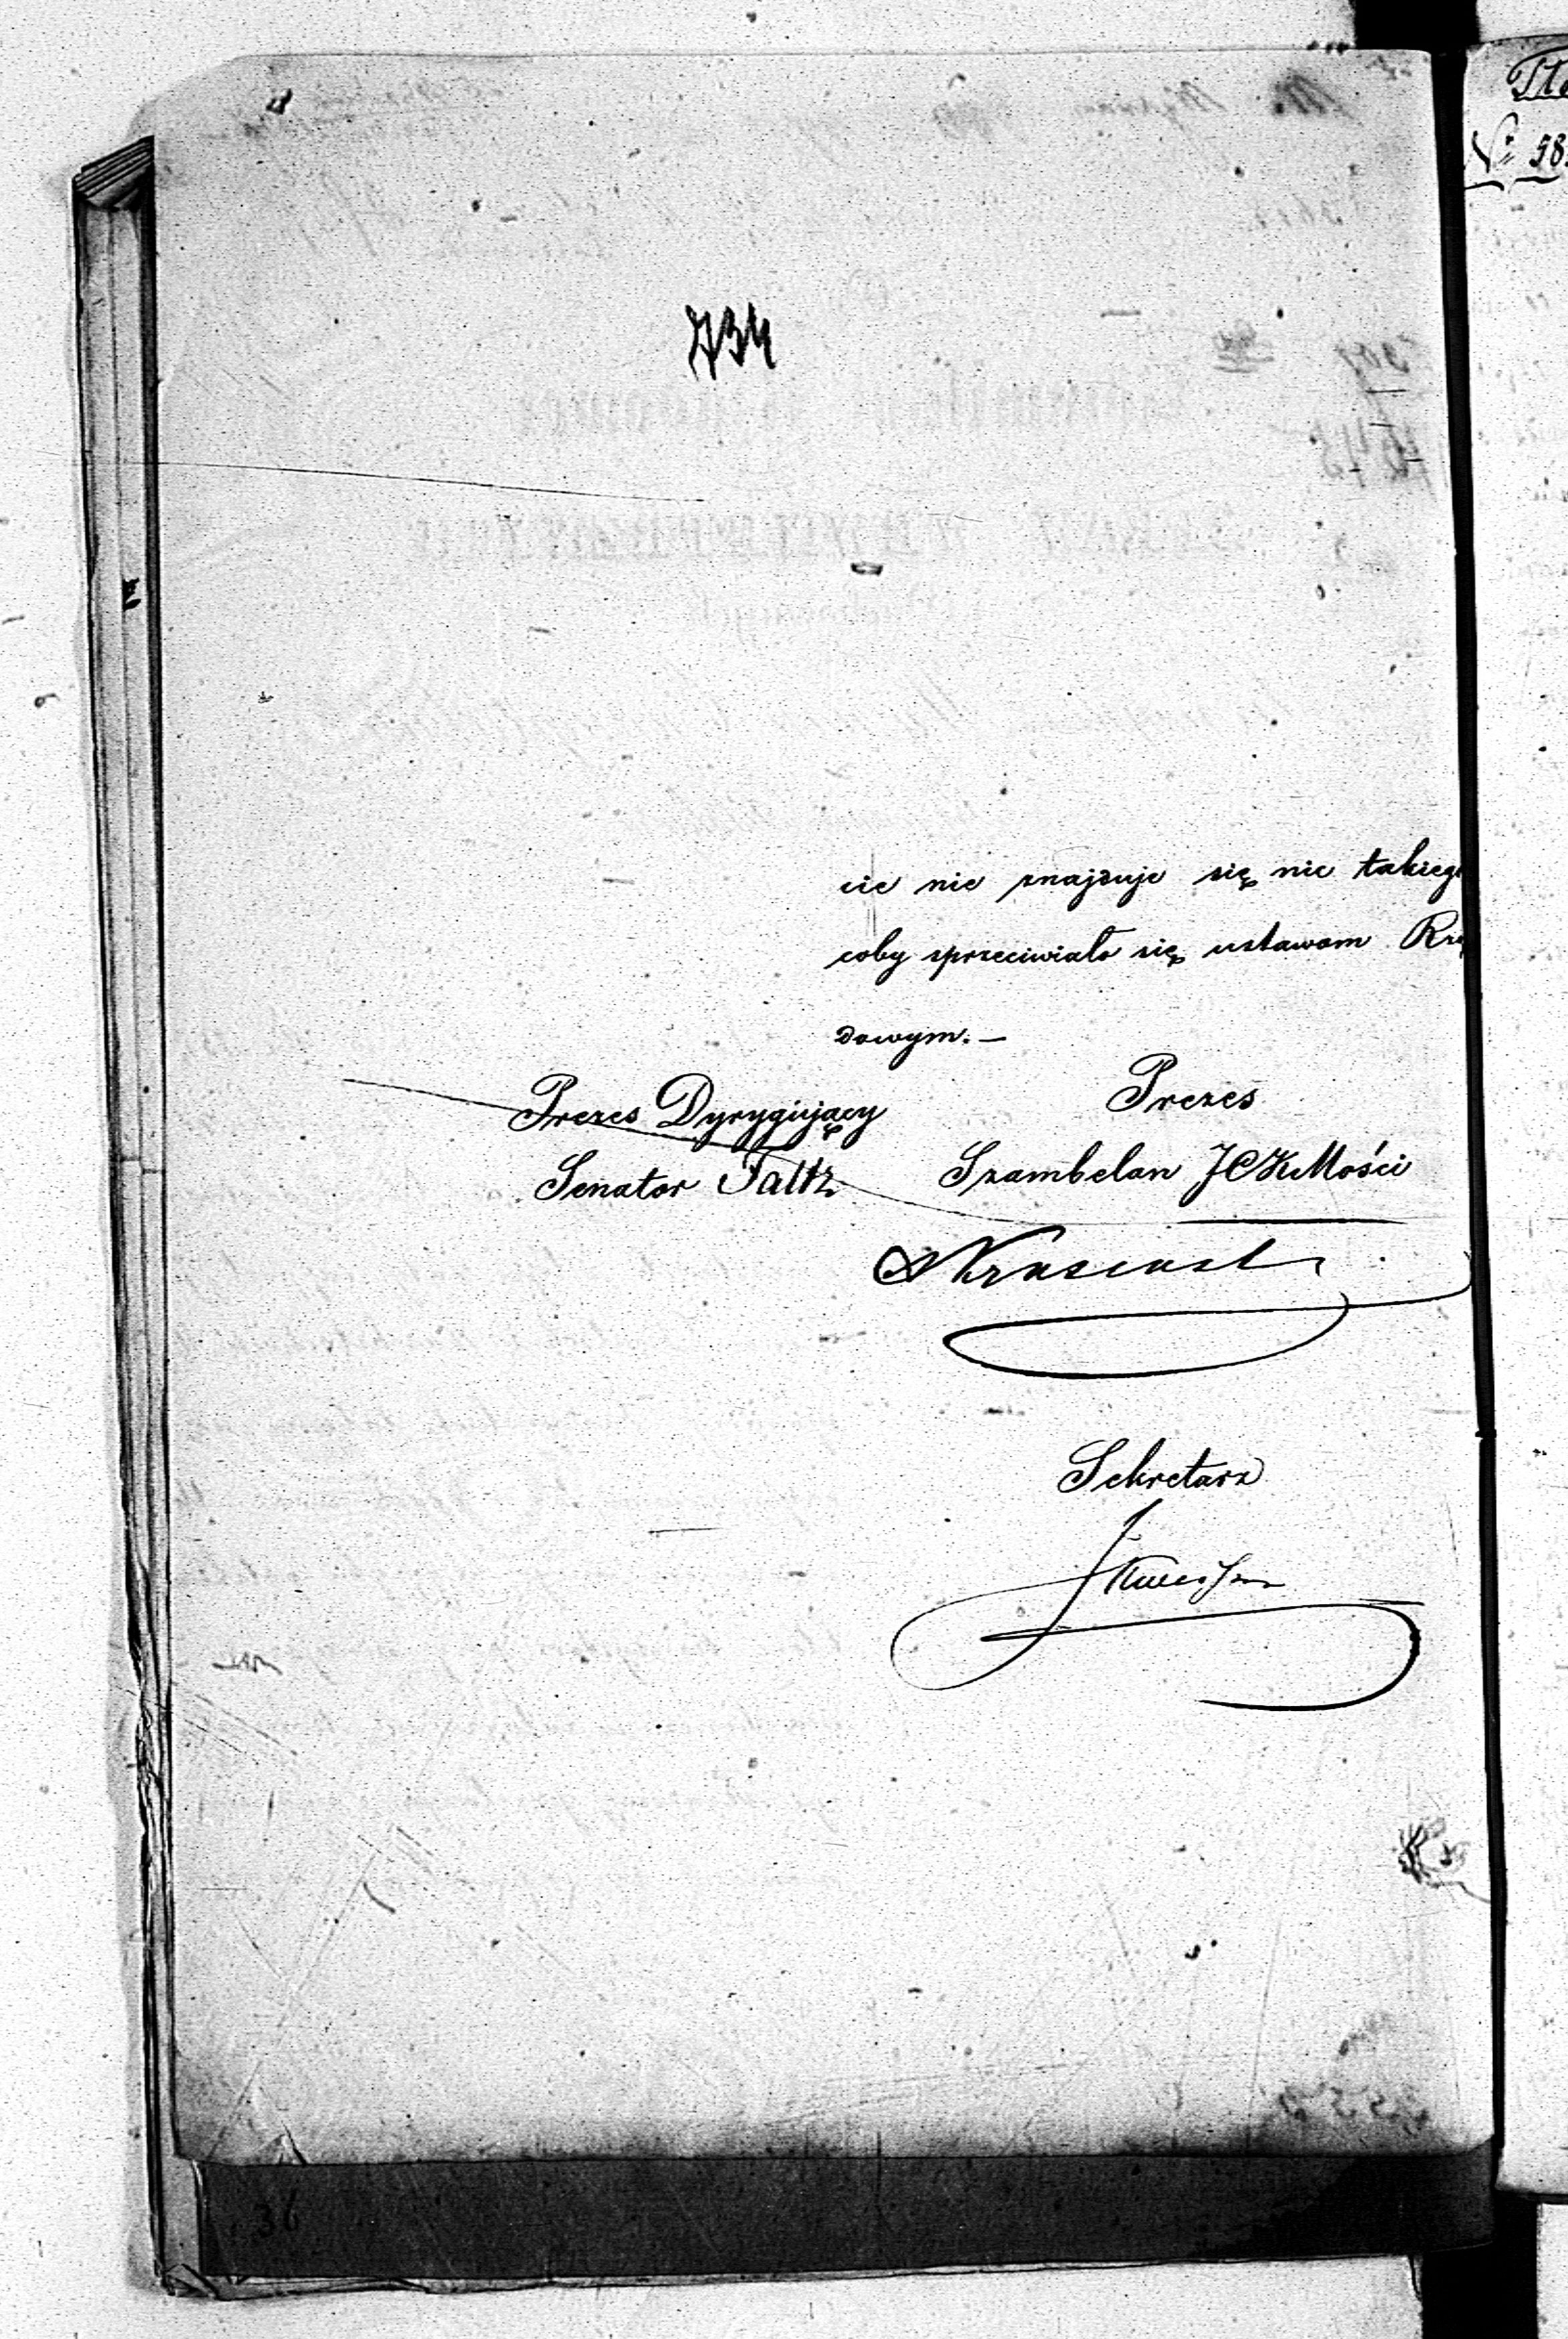 734
cie nie znajduje się nic takiego
coby sprzeciwiało się ustawom Rzą
dowym. —
Prezes Dyrygujący
Senator Faltz
Prezes
Szambelan JCKMości
AKrasiński
Sekretarz
36